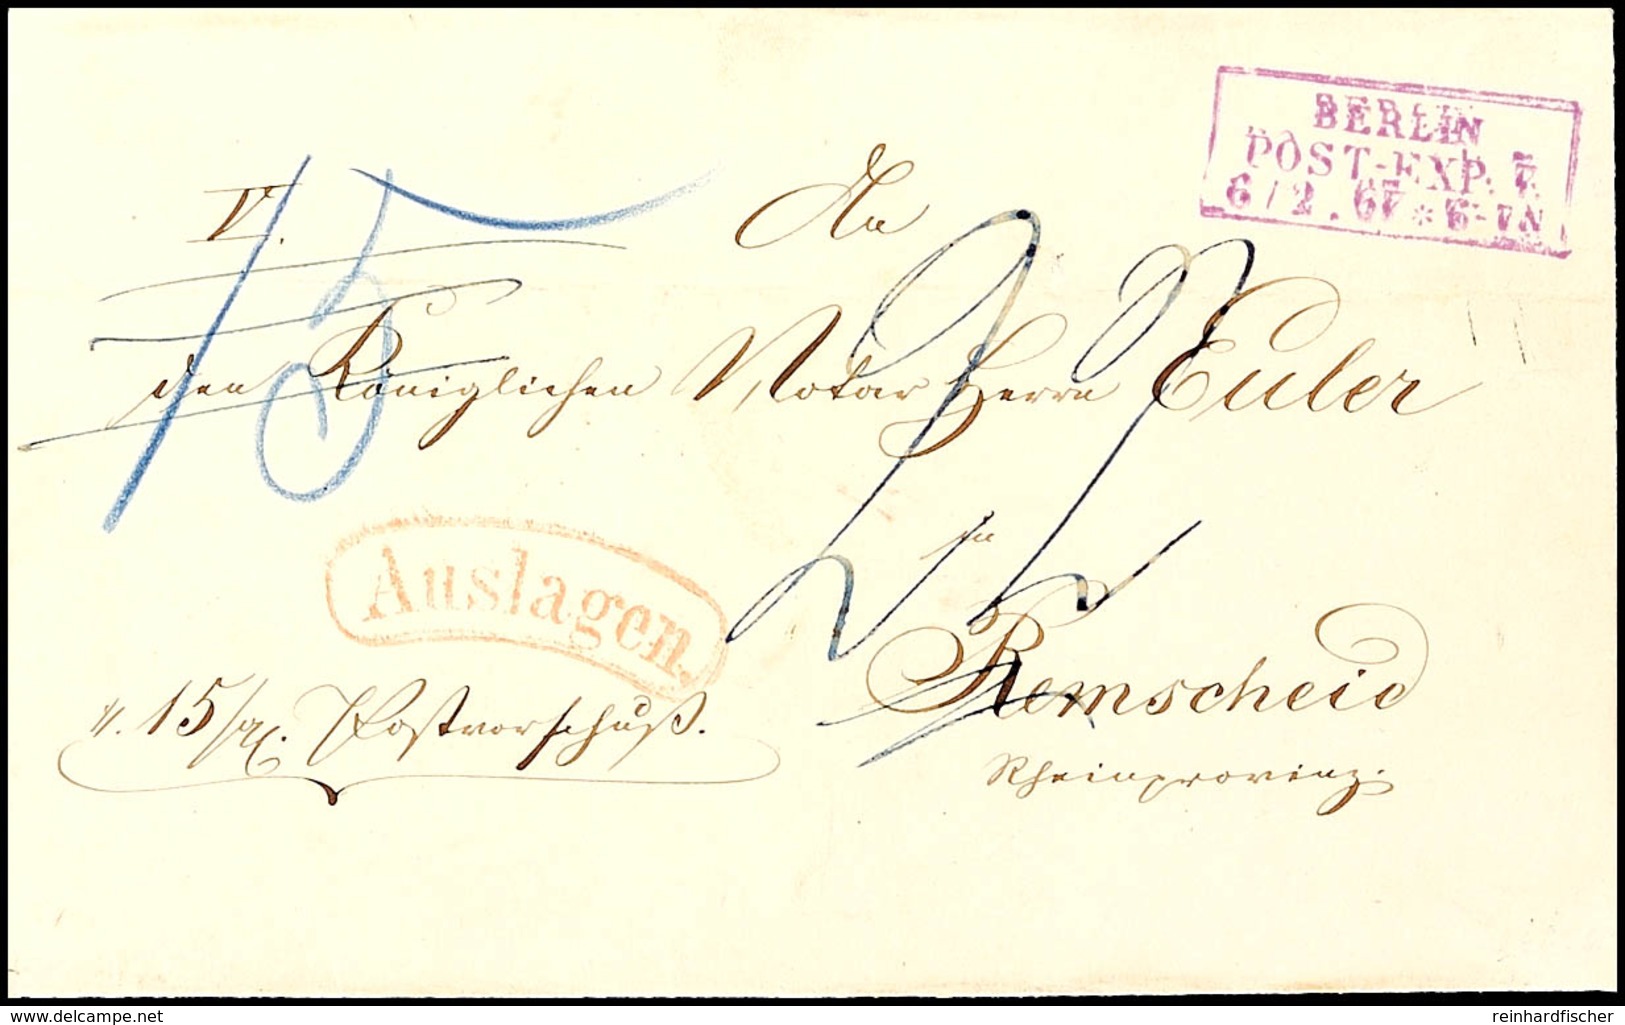 BERLIN
POST-EXP. 7.
6/2. 67 * 6-7N
V.
An
den Königlichen Notar Herrn Euler
in
Remscheid
Rheinprovinz.
Auslagen.
15 Postvorschuß.
15
www.delcampe.net
reinhardfischer